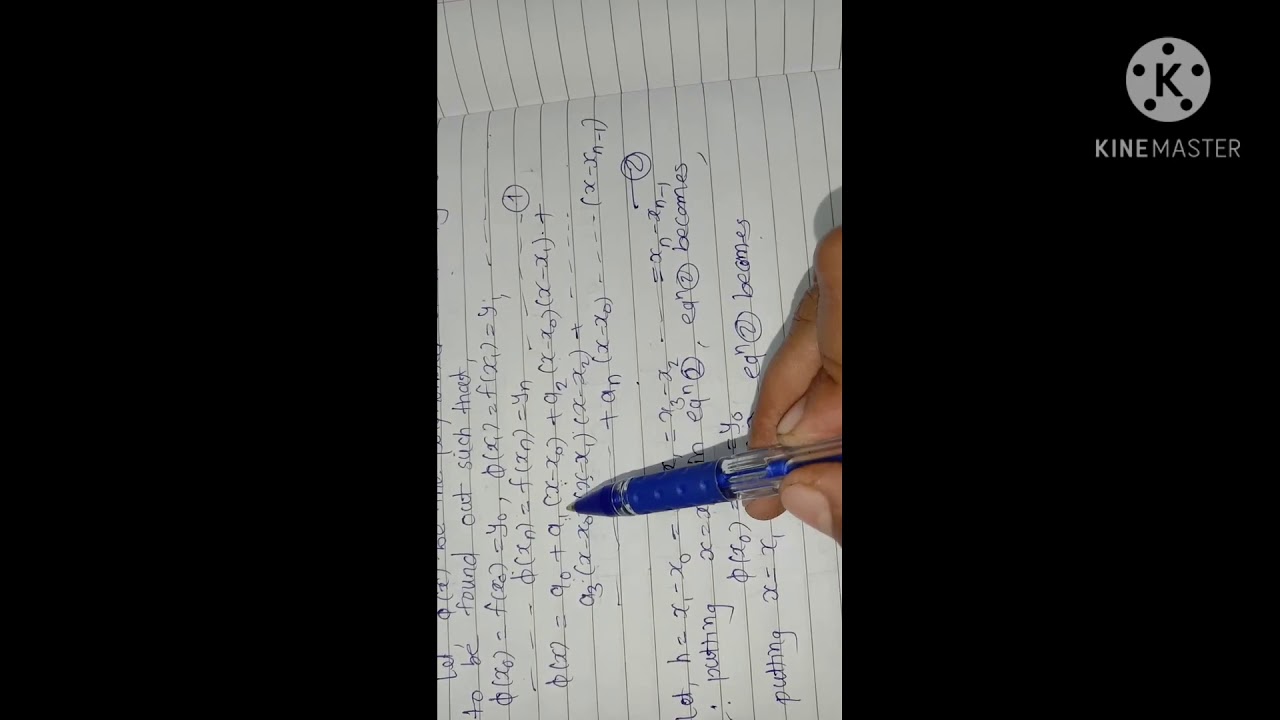 Let φ(x) be the
to be found out such that,
φ(x₀) = f(x₀) = y₀, φ(x₁) = f(x₁) = y₁,
- - - - φ(xₙ) = f(xₙ) = yₙ - - - - - ①
φ(x) = a₀ + a₁(x-x₀) + a₂(x-x₀)(x-x₁) +
a₃(x-x₀)(x-x₁)(x-x₂) + - - - -
- - - - + aₙ(x-x₀) - - - - (x-xₙ₋₁)
- ②
Let, h = x₁-x₀ = = x₃-x₂ - - - - = xₙ-xₙ₋₁
∴ putting x = in eqⁿ②, eqⁿ② becomes,
φ(x₀) = = y₀
putting x = x₁ eqⁿ② becomes
K
KINEMASTER